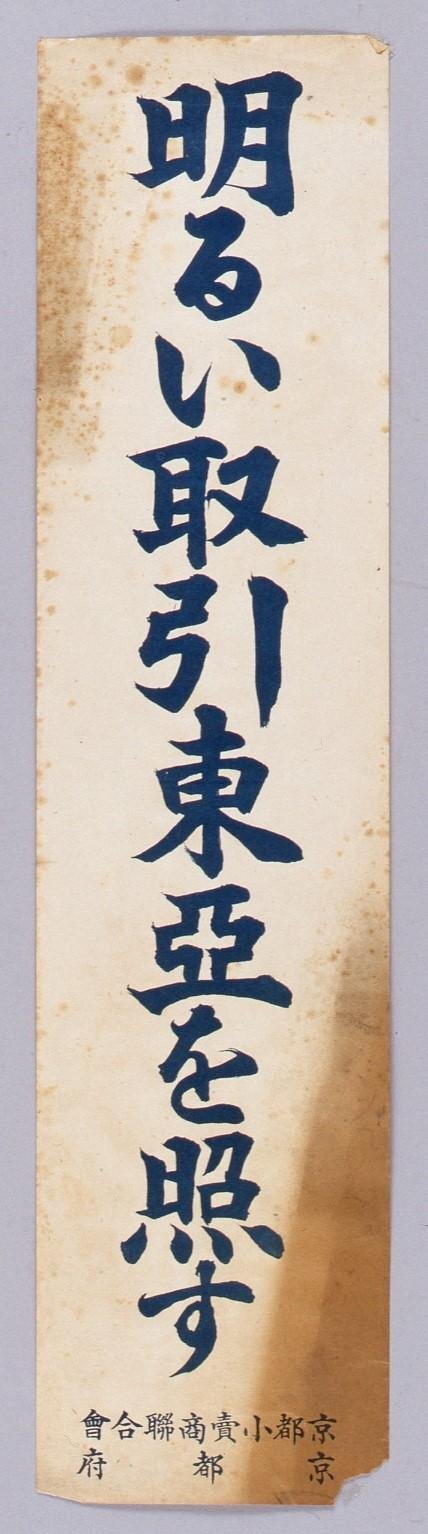 明るい取引東亞を照す
京都小賣商聯合會
京都府